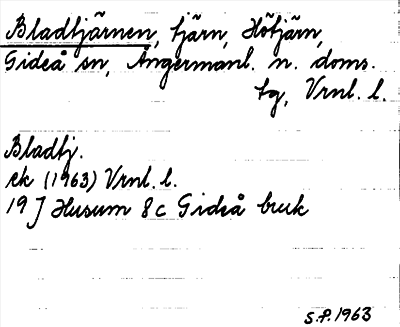 Bladtjärnen, tjärn, Hötjärn,
Gideå sn, Ångermanl. n. doms.
tg, Vrnl. l.
Bladtj.
ek (1963) Vrnl. l.
19 J Husum 8c Gideå bruk
S.P. 1963